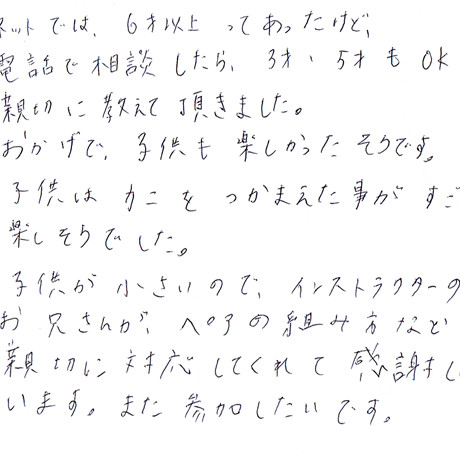 ネットでは、6才以上ってあったけど、
電話で相談したら、3才・5才もOK
親切に教えて頂きました。
おかげで、子供も楽しかったそうです。
子供はカニをつかまえた事がすご
楽しそうでした。
子供が小さいので、インストラクターの
お兄さんが、ペアの組み方など
親切に対応してくれて感謝し
います。また参加したいです。